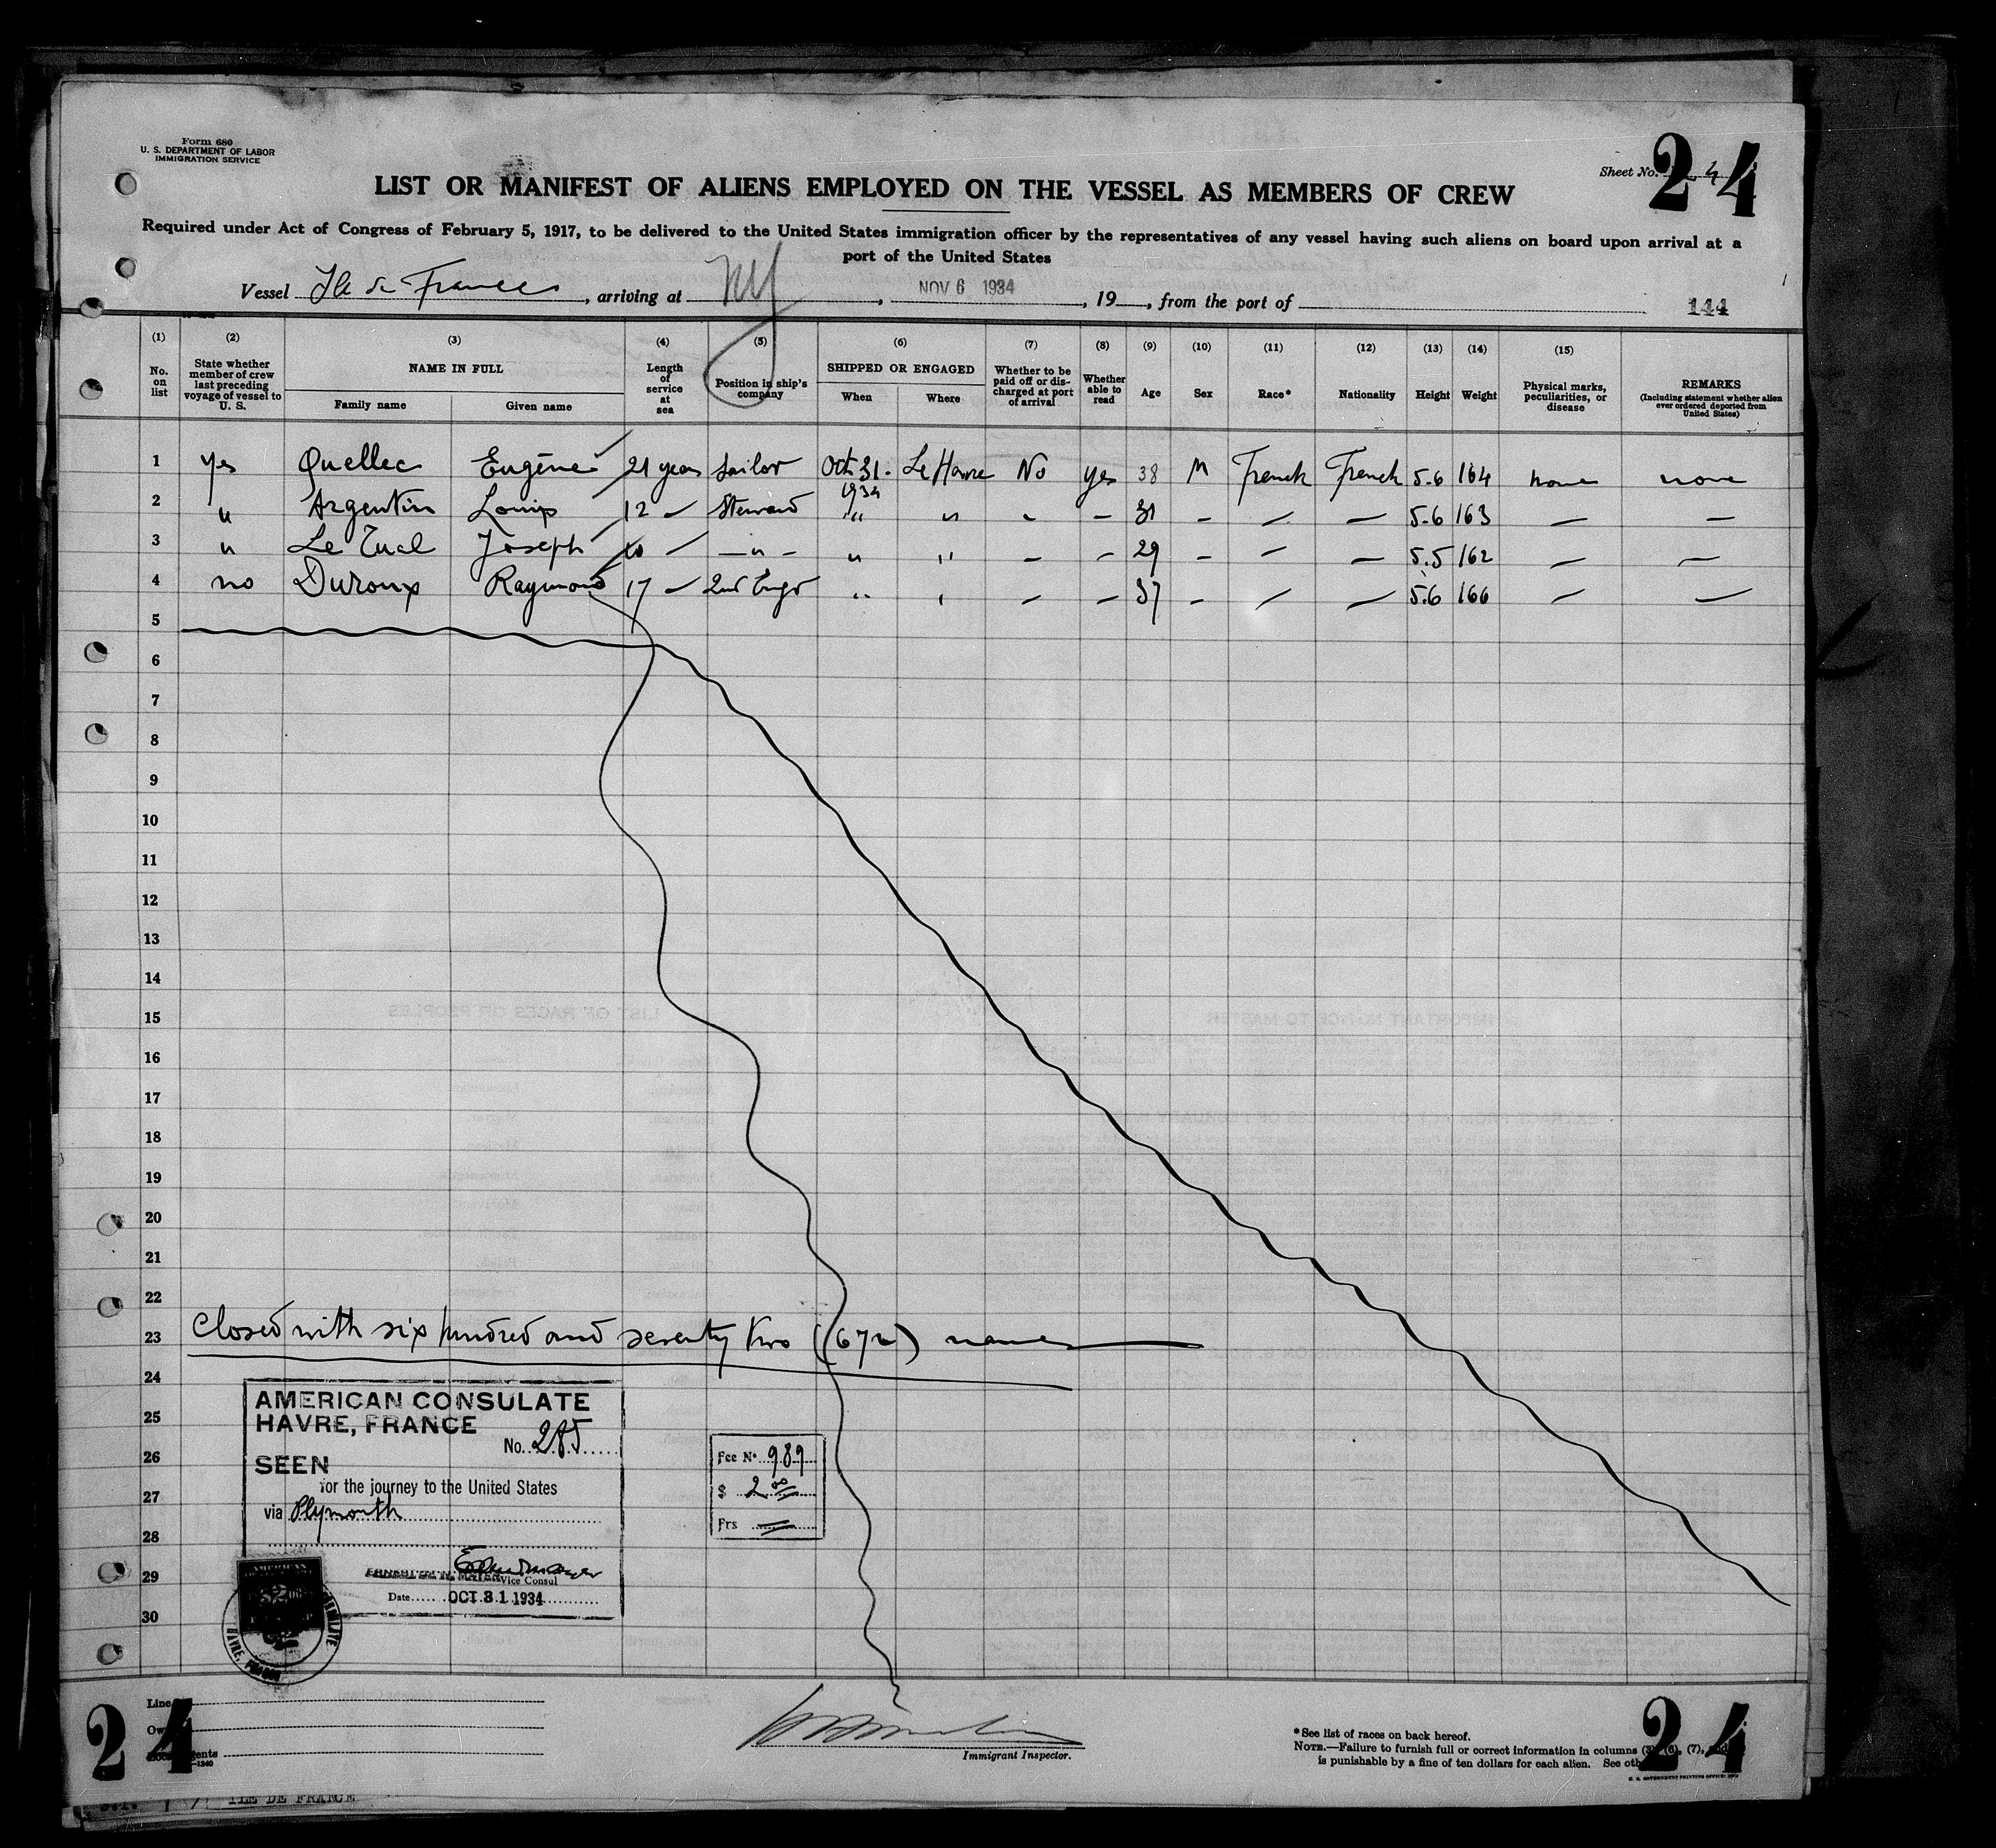 Form 680
U. S. DEPARTMENT OF LABOR
IMMIGRATION SERVICE
Sheet No. 4
24
LIST OR MANIFEST OF ALIENS EMPLOYED ON THE VESSEL AS MEMBERS OF CREW
Required under Act of Congress of February 5, 1917, to be delivered to the United States immigration officer by the representatives of any vessel having such aliens on board upon arrival at a
port of the United States
Vessel Ile de France, arriving at NY, NOV 6 1934, 19, from the port of
144
(1) (2) (3) (4) (5) (6) (7) (8) (9) (10) (11) (12) (13) (14) (15)
No. on list
State whether member of crew last preceding voyage of vessel to U. S.
NAME IN FULL
Family name Given name
Length of service at sea
Position in ship's company
SHIPPED OR ENGAGED
When Where
Whether to be paid off or discharged at port of arrival
Whether able to read
Age
Sex
Race*
Nationality
Height
Weight
Physical marks, peculiarities, or disease
REMARKS
(Including statement whether alien ever ordered deported from United States)
1 yes Quellec Eugène 21 years Sailor Oct. 31. 1934 Le Havre No yes 38 M French French 5.6 164 none none
2 " Argentin Louis 12 — Steward " " - — 31 — — — 5.6 163 — —
3 " Le Tual Joseph 10 — —"— " " — — 29 — — — 5.5 162 — —
4 no Duroux Raymond 17 — 2nd Engr " " — — 37 — — — 5.6 166 — —
5
6
7
8
9
10
11
12
13
14
15
16
17
18
19
20
21
22
23 Closed with six hundred and seventy two (672) names
24
25
26
27
28
29
30
AMERICAN CONSULATE
HAVRE, FRANCE
No. 285
SEEN
for the journey to the United States
via Plymouth
Vice Consul
Date OCT 31 1934
Fee No. 989
$ 2.00
Frs —
HAVRE,
Line
24
Immigrant Inspector.
*See list of races on back hereof.
NOTE.—Failure to furnish full or correct information in columns (3), (6), (7),
is punishable by a fine of ten dollars for each alien. See
24
ILE DE FRANCE